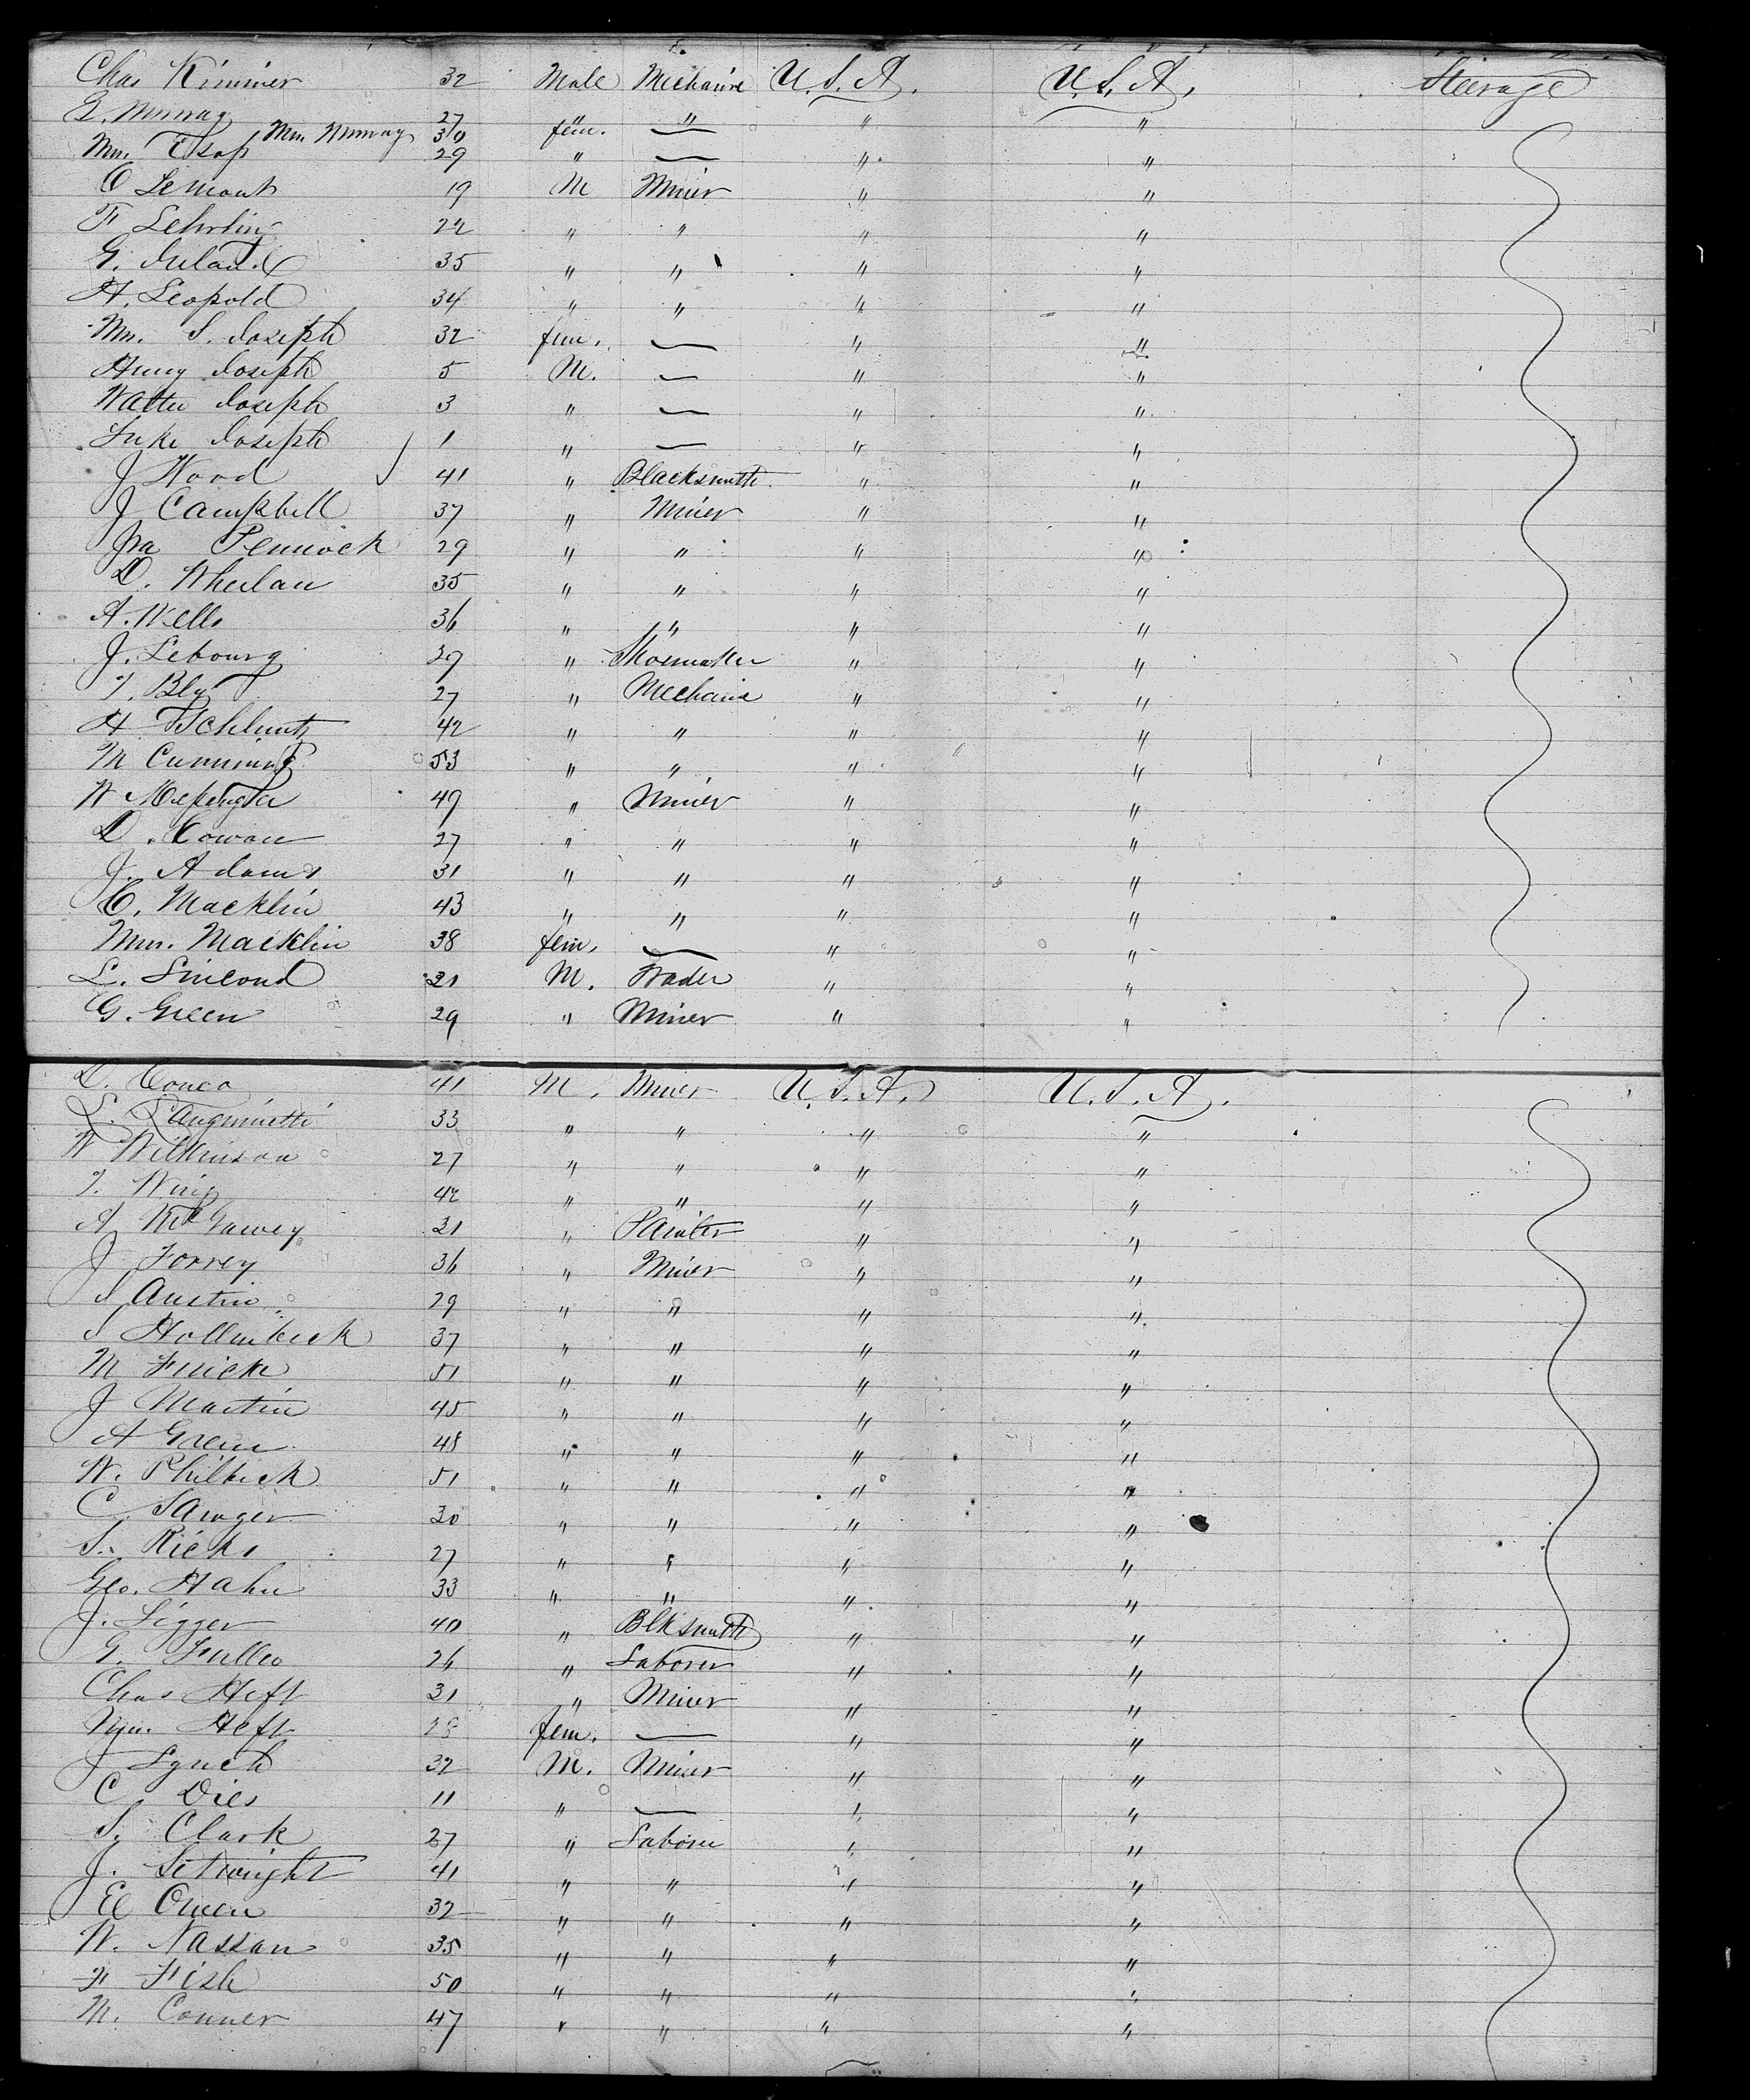 Chas Kimmer 32 Male Mechanic U.S.A. U.S.A. Steerage
G. Murray 27 " " " "
Mrs Murray 30 fem. —
Mrs. Esop 29 " — " "
O Lemont 19 M Miner " "
F Lehrling 22 " " " "
G. 35 " " " "
H. Leopold 34 " " " "
Mrs. S. Joseph 32 fem. — " "
Henry Joseph 5 M. — " "
Walter Joseph 3 " — " "
Luke Joseph 1 " — " "
J Wood 41 " Blacksmith " "
J Campbell 37 " Miner " "
Ira Pennock 29 " " " "
D. Whelan 35 " " " "
A. Wells 36 " " " "
J. Lebourg 39 " Shoemaker " "
T. Bly 27 " Mechanic " "
H 42 " " " "
M Cumming 53 " " " "
W 49 " Miner " "
D. Cowan 27 " " " "
J. Adams 31 " " " "
C. Macklin 43 " " " "
Mrs. Macklin 38 fem. — " "
L. Simond 31 M. Trader " "
G. Green 29 " Miner " "
D. 41 M. Miner U.S.A. U.S.A.
L. 33 " " " "
W Wilkinson 27 " " " "
T. Wing 42 " " " "
A 31 " Painter " "
J Torrey 36 " Miner " "
S Austin 29 " " " "
S Hollenbeck 37 " " " "
M Fricke 51 " " " "
J Martin 45 " " " "
A Green 48 " " " "
W. Philbrick 51 " " " "
C. Sawyer 30 " " " "
S. Ricks 27 " " " "
Geo. Hahn 33 " " " "
J. Ligger 40 " Blksmith " "
G. Fuller 26 " Laborer " "
Chas Heft 31 " Miner " "
Mrs. Heft 28 fem. — " "
J Lynch 32 M. Miner " "
C Dies 11 " — " "
S. Clark 27 " Laborer " "
J. Setwright 41 " " " "
Ed Owen 32 " " " "
W. Nassan 35 " " " "
F Fish 50 " " " "
M. Conner 47 " " " "